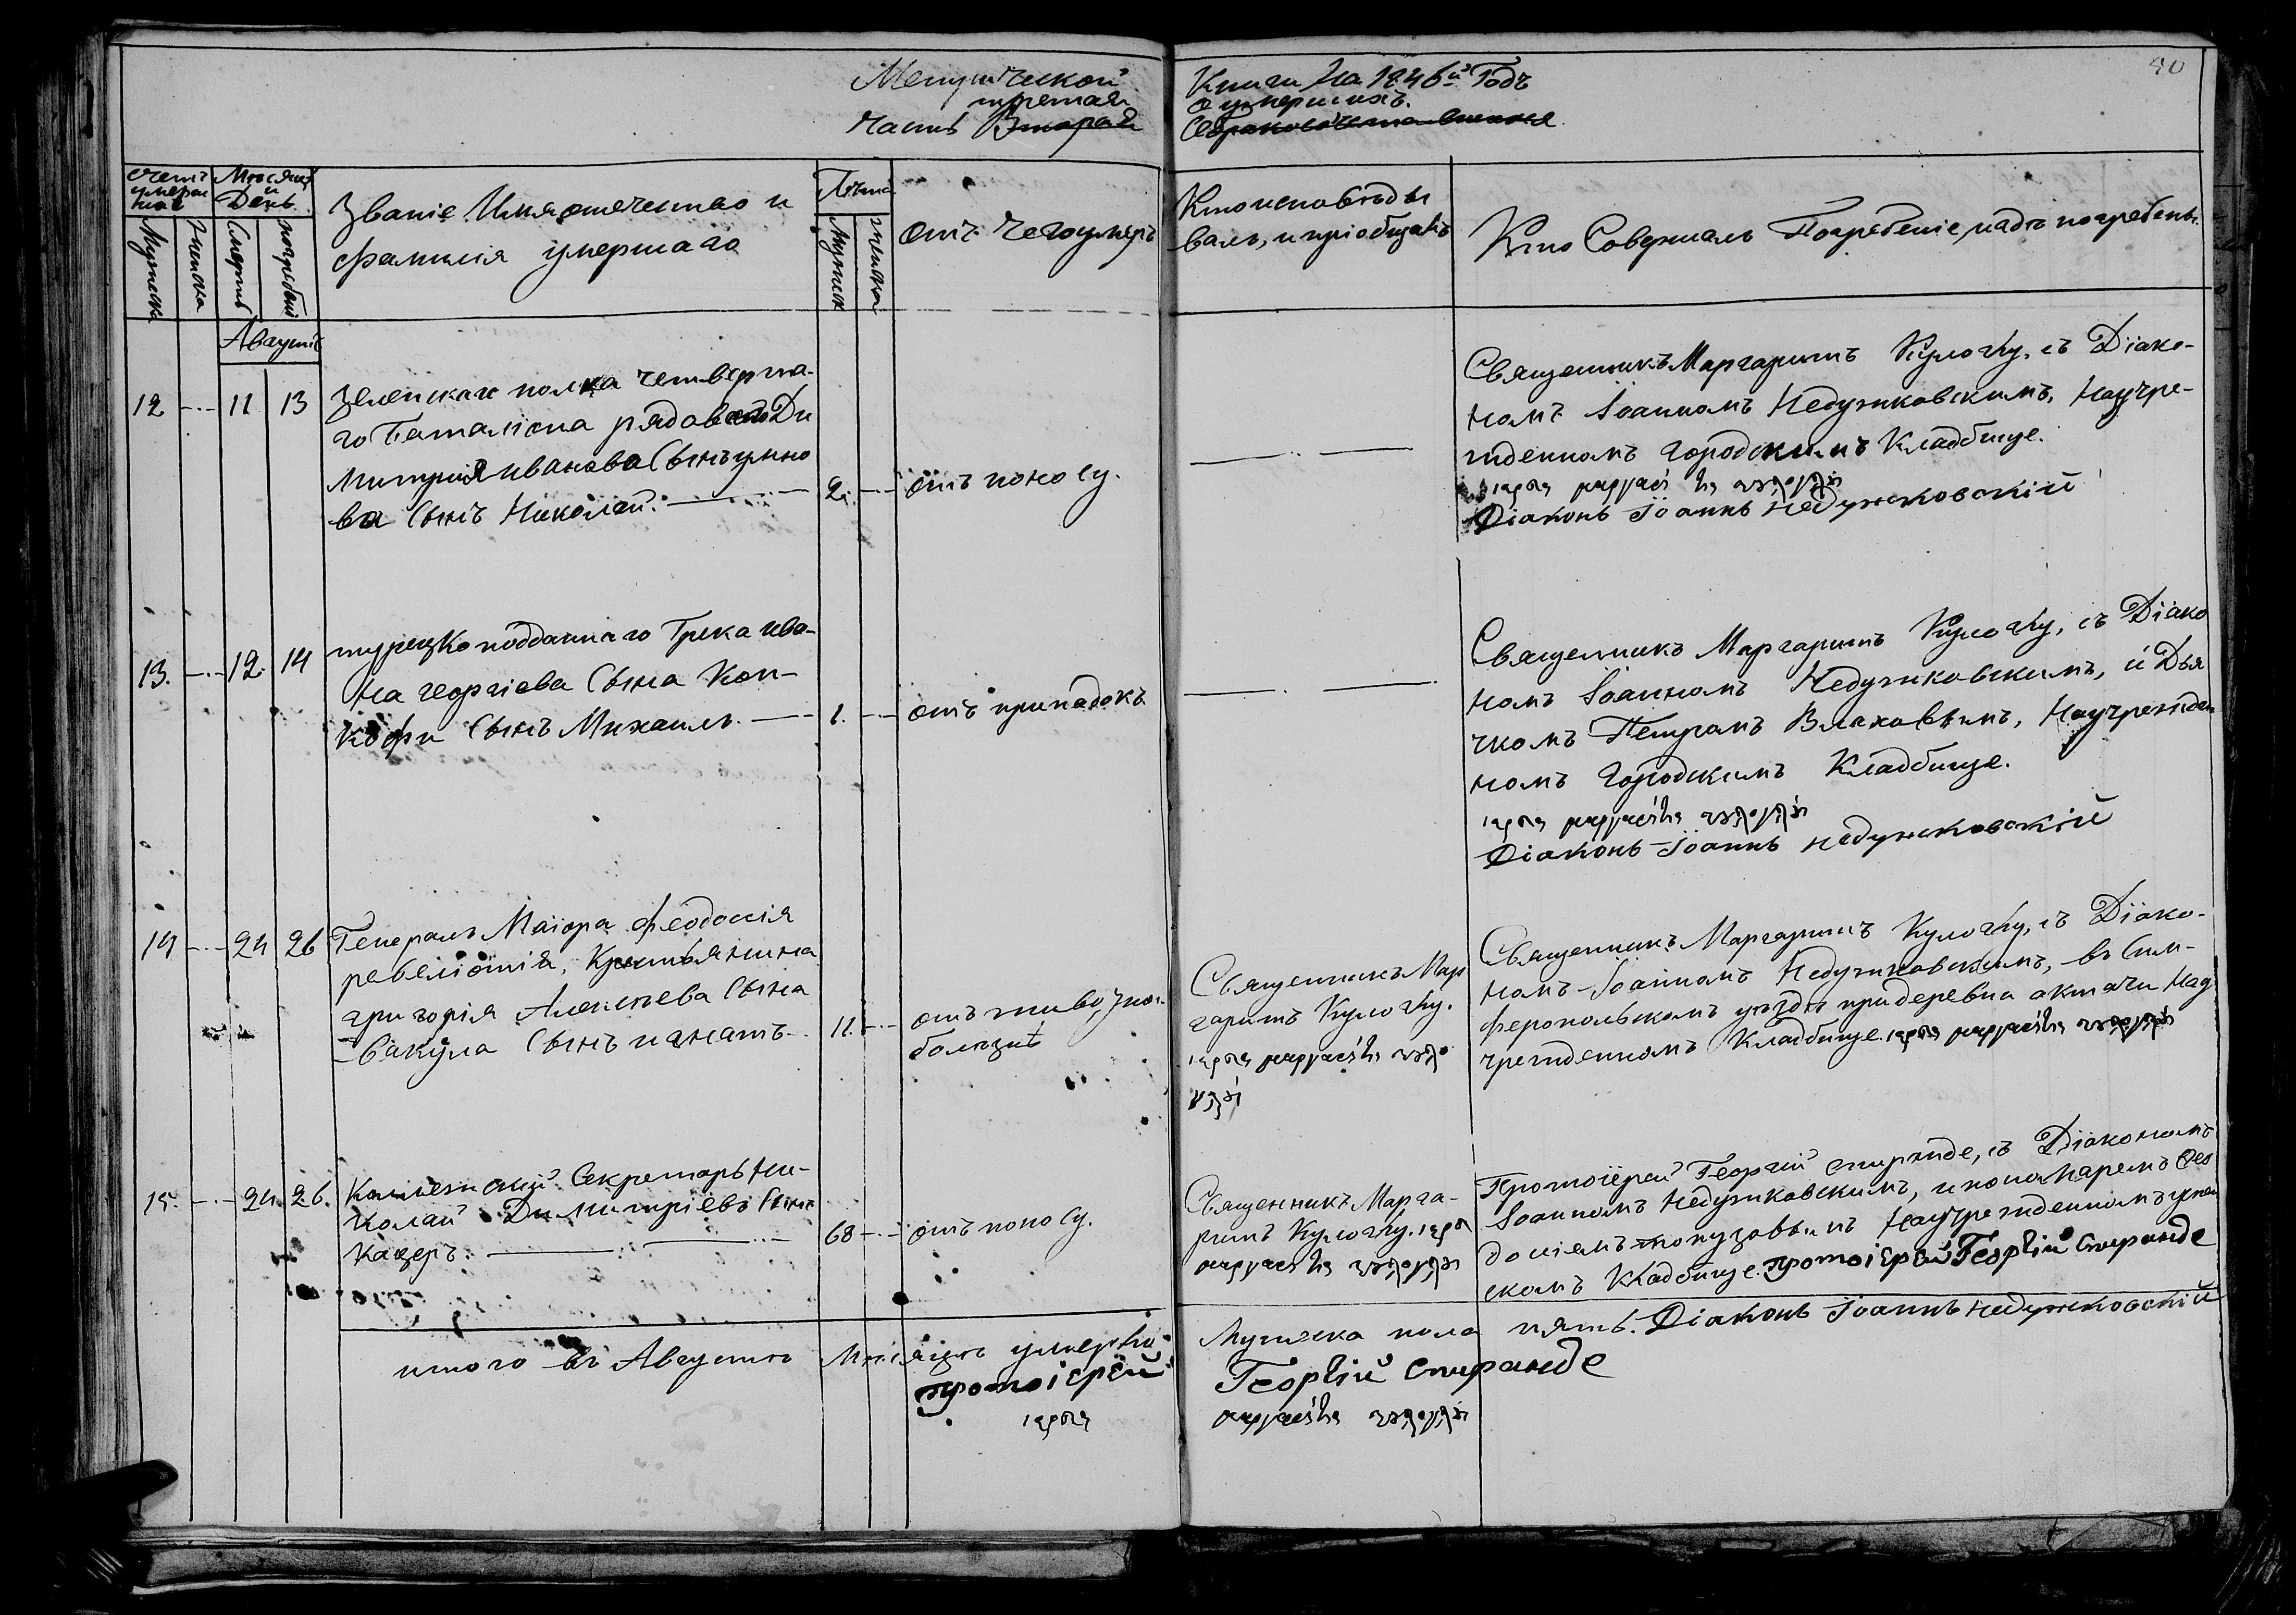 Метрической Книги На 1846й Годъ
третая о умершихъ.
часть Вторая О бракосочетавшихся
40
Счетъ умершихъ
Мѣсяцъ и День
Званіе Имя отечество и
фамилія умершаго
Лѣта
отъ чего умеръ
Кто исповѣды
валъ, и пріобщалъ
Кто Совершалъ Погребеніе, и гдѣ погребены.
Мужеска
Женска
Смерти
погребенія
Мужеска
женска
Августъ
12 11 13
полка четверта-
го Баталіона рядового Ди
митрия иванова Сына
ва Сынъ Николай.
2. отъ поносу.
Священникъ Маргаритъ Кулоглу, съ Діако-
номъ Іоанномъ Недужковскимъ, На учре-
жденномъ городскимъ Кладбище.
Діаконъ Іоаннъ Недужковскій
13. 12. 14
турецко подданнаго Грека ива-
на георгіева Сына Кон-
Сынъ Михаилъ.
1. отъ припадокъ.
Священникъ Маргаритъ Кулоглу, съ Діако
номъ Іоанномъ Недужковскимъ, и Дья
чкомъ Петромъ Влаховымъ, На учрежден
номъ городскимъ Кладбище.
Діаконъ Іоаннъ недужковскій
14 24 26
Генералъ Маіора Феодосія
ревеліотія, Крестьянина
григорія Алексѣева Сына
Вакула Сынъ игнатъ.
11. отъ
болезнѣ
Священникъ Мар
гаритъ Кулоглу.
Священникъ Маргаритъ Кулоглу, съ Діако-
номъ Іоанномъ Недужковскимъ, въ Сим-
феропольскомъ уѣздѣ при деревна актачи На у
чрежденномъ Кладбище.
15. 24. 26.
Коллежский Секретарь Ни-
колай Димитріевъ Сынъ
68 отъ поносу.
Священникъ Марга-
ритъ Кулоглу.
Протоіерей Георгій спиранде, съ Діакономъ
Іоанномъ Недужковскимъ, и понамаремъ Фео
досіемъ На учрежденномъ
скомъ Кладбище. протоіерей Георгій спиранде
итого въ Августѣ Мѣсяцѣ умерло Мужеска пола пять. Діаконъ Іоаннъ недужковскій
протоіерей Георгій спиранде